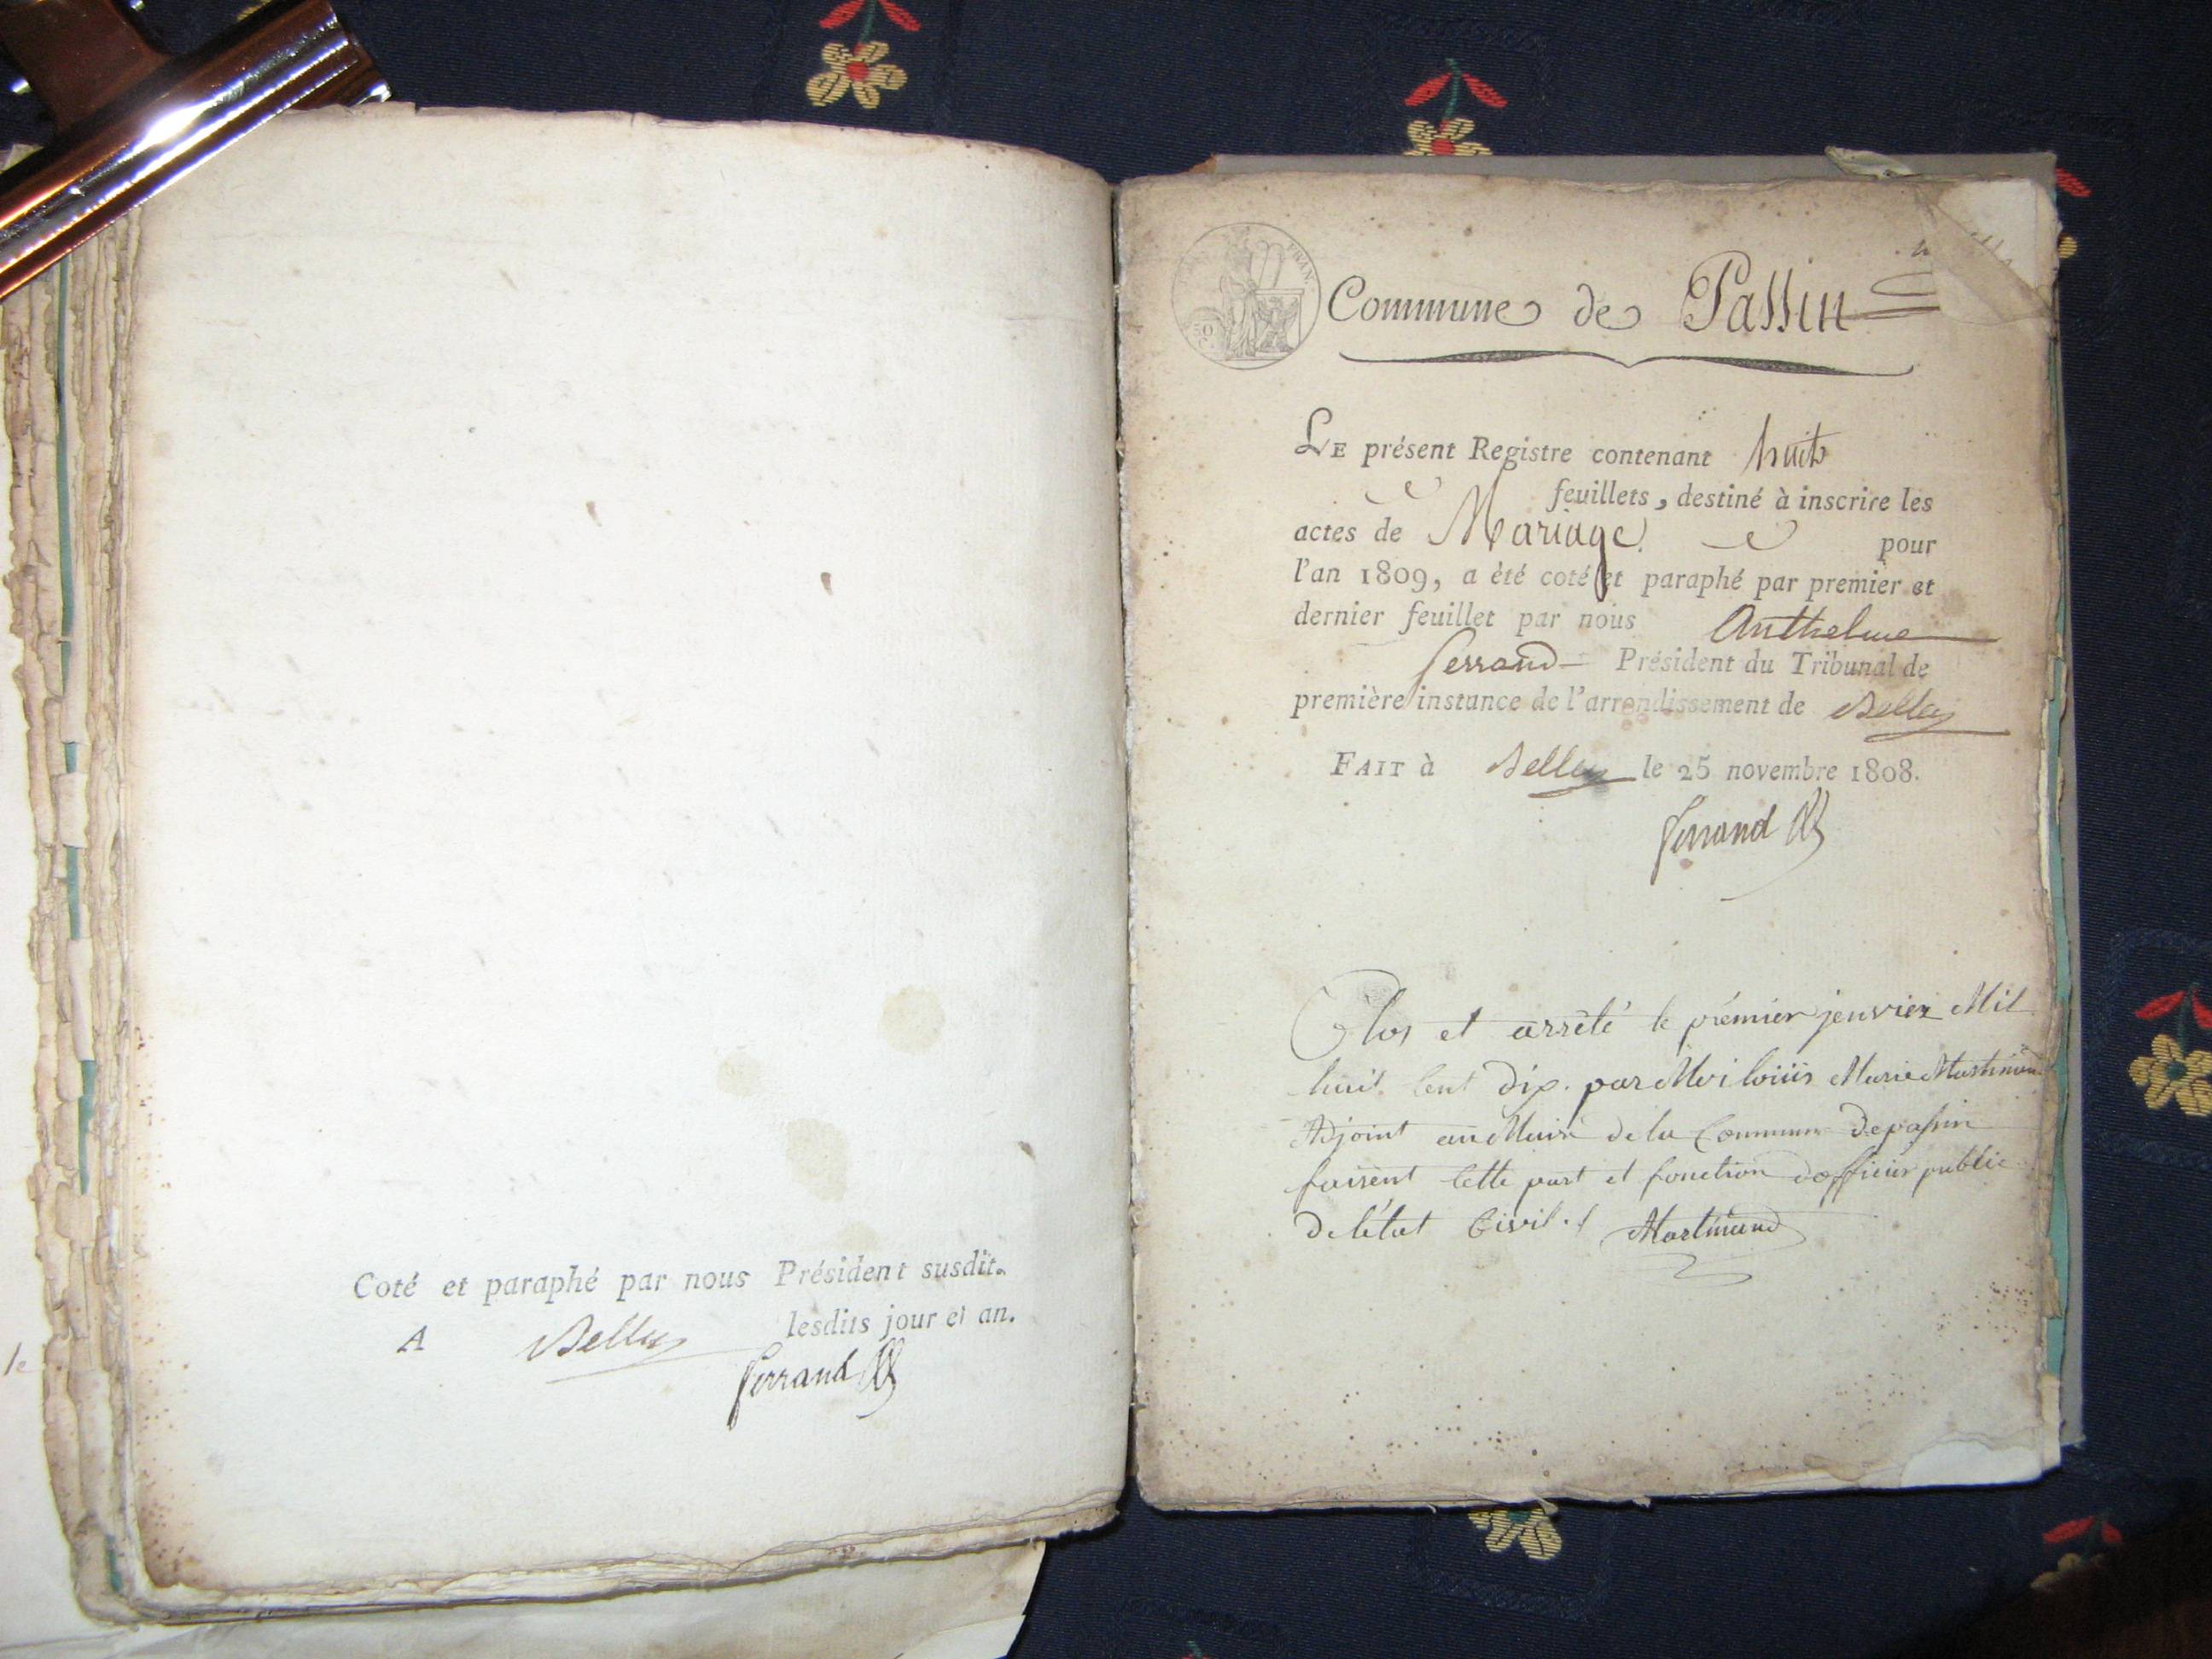 Coté et paraphé par nous Président susdit.
A Belley lesdits jour et an.
Ferrand
FRAN
Commune de Passin
LE présent Registre contenant huit
feuillets, destiné à inscrire les
actes de Mariage pour
l'an 1809, a été coté et paraphé par premier et
dernier feuillet par nous Anthelme
Ferrand Président du Tribunal de
première instance de l'arrondissement de Belley
FAIT à Belley le 25 novembre 1808.
Ferrand
Clos et arrêté le prémier jenvier Mil
huit Cent dix. par Moi louis Marie Martinand
Adjoint au Maire de la Commune de passin
faisent Cette part et fonction d'officier public
De l'état Civil.
Martinand
le